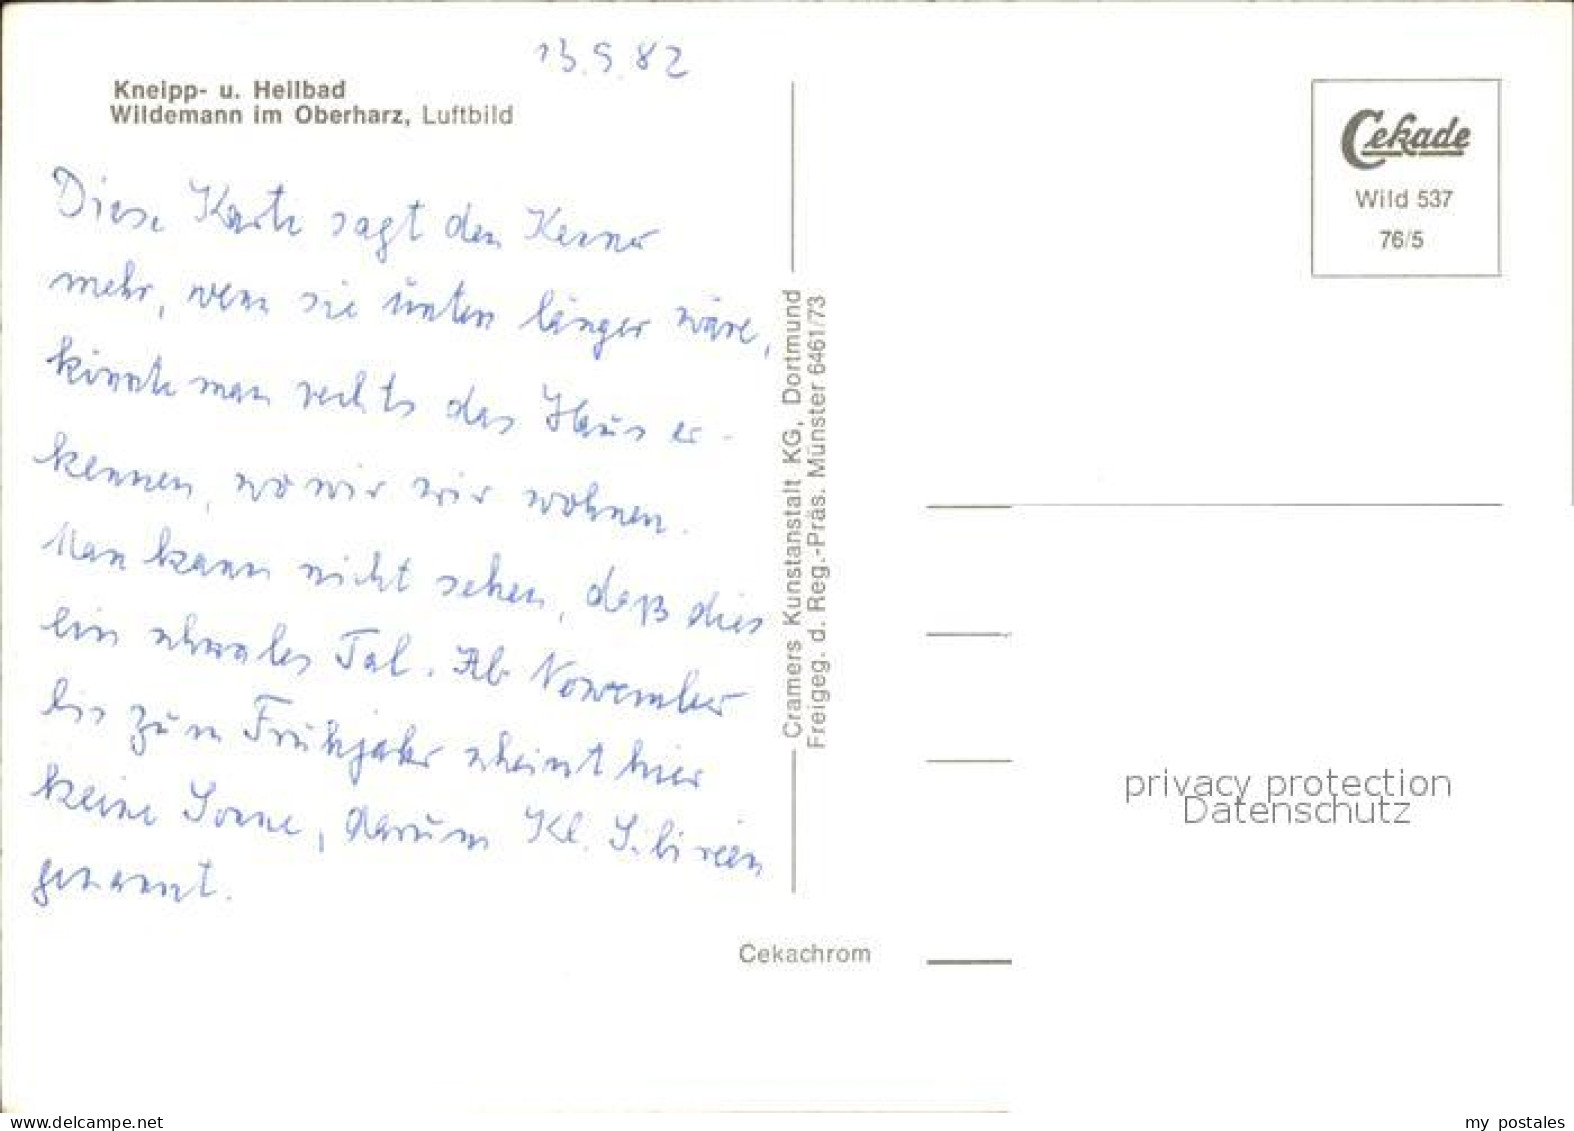 13.9.82
Kneipp- u. Heilbad
Wildemann im Oberharz, Luftbild
Diese Karte sagt den Kenner
mehr, wenn sie unten länger wäre,
könnte man rechts das Haus er-
kennen, wo wir wir wohnen.
Man kann nicht sehen, daß dies
ein schmales Tal. Ab November
bis zum Frühjahr scheint hier
keine Sonne, darum Kl. Sibirien
genannt.
Cramers Kunstanstalt KG, Dortmund
Freigeg. d. Reg.-Präs. Münster 6461/73
Cekachrom
Cekade
Wild 537
76/5
privacy protection
Datenschutz
my postales